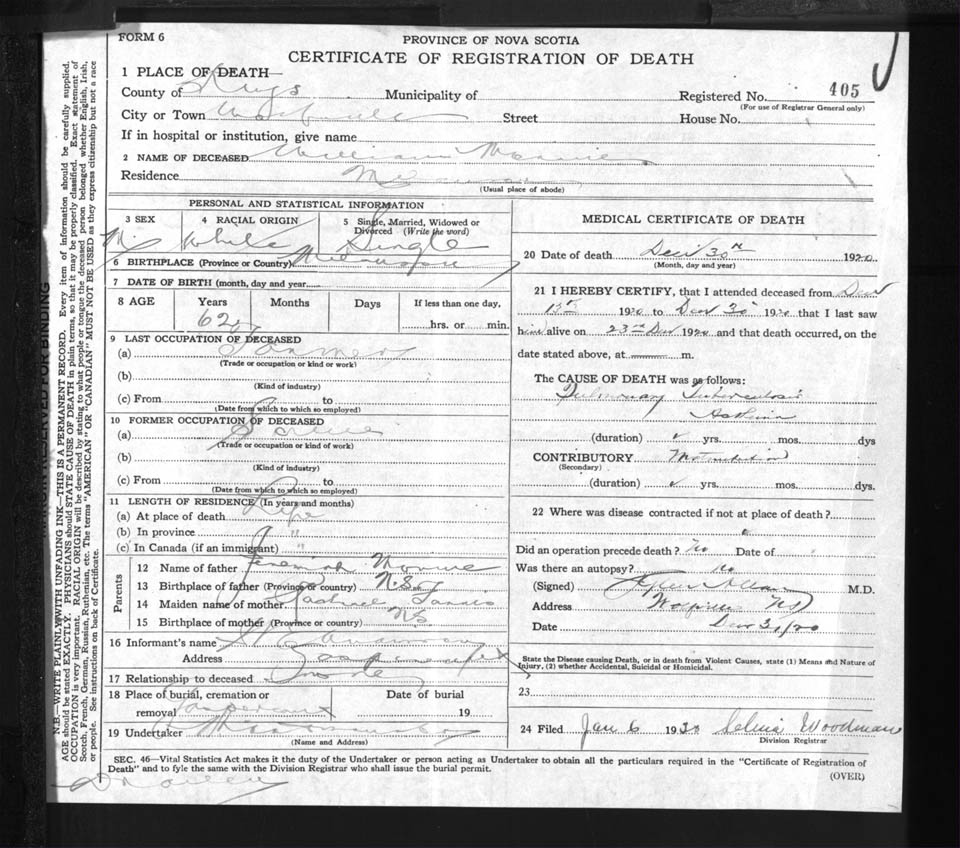 FORM 6
PROVINCE OF NOVA SCOTIA
CERTIFICATE OF REGISTRATION OF DEATH
1 PLACE OF DEATH—
County of Kings Municipality of Registered No. 405
(For use of Registrar General only)
City or Town Street House No.
If in hospital or institution, give name
2 NAME OF DECEASED William
Residence
(Usual place of abode)
PERSONAL AND STATISTICAL INFORMATION
3 SEX 4 RACIAL ORIGIN 5 Single, Married, Widowed or
Divorced (Write the word)
M White Single
6 BIRTHPLACE (Province or Country)
7 DATE OF BIRTH (month, day and year
8 AGE Years Months Days If less than one day,
62 hrs. or min.
9 LAST OCCUPATION OF DECEASED
(a) Farmer
(Trade or occupation or kind of work)
(b)
(Kind of industry)
(c) From to
(Date from which to which so employed)
10 FORMER OCCUPATION OF DECEASED
(a)
(Trade or occupation or kind of work)
(b)
(Kind of industry)
(c) From to
(Date from which to which so employed)
11 LENGTH OF RESIDENCE (In years and months)
(a) At place of death Life
(b) In province "
(c) In Canada (if an immigrant) "
Parents
12 Name of father Jeremiah
13 Birthplace of father (Province or country) N.S.
14 Maiden name of mother Rachael
15 Birthplace of mother (Province or country) NS
16 Informant's name
Address
17 Relationship to deceased
18 Place of burial, cremation or Date of burial
removal 19
19 Undertaker
(Name and Address)
MEDICAL CERTIFICATE OF DEATH
20 Date of death Dec 30th 1920
(Month, day and year)
21 I HEREBY CERTIFY, that I attended deceased from Dec
1920 to Dec 30 1920 that I last saw
him alive on 23rd Dec 1920 and that death occurred, on the
date stated above, at m.
The CAUSE OF DEATH was as follows:
Pulmonary Tuberculosis
(duration) yrs. mos. dys
CONTRIBUTORY
(Secondary)
(duration) yrs. mos. dys.
22 Where was disease contracted if not at place of death?
Did an operation precede death? No Date of
Was there an autopsy? No
(Signed) M.D.
Address NS
Date Dec 31/20
State the Disease causing Death, or in death from Violent Causes, state (1) Means and Nature of
Injury, (2) whether Accidental, Suicidal or Homicidal.
23
24 Filed Jan 6 19 Woodman
Division Registrar
SEC. 46—Vital Statistics Act makes it the duty of the Undertaker or person acting as Undertaker to obtain all the particulars required in the "Certificate of Registration of
Death" and to fyle the same with the Division Registrar who shall issue the burial permit.
(OVER)
MARGIN RESERVED FOR BINDING
N.B.—WRITE PLAINLY WITH UNFADING INK—THIS IS A PERMANENT RECORD. Every item of information should be carefully supplied.
AGE should be stated EXACTLY. PHYSICIANS should STATE CAUSE OF DEATH in plain terms, so that it may be properly classified. Exact statement of
OCCUPATION is very important. RACIAL ORIGIN will be described by stating to what people or tongue the deceased person belonged whether English, Irish,
Scotch, French, German, Russian, Ruthenian, etc. The terms "AMERICAN" or "CANADIAN" MUST NOT BE USED as they express citizenship but not a race
or people. See instructions on back of Certificate.